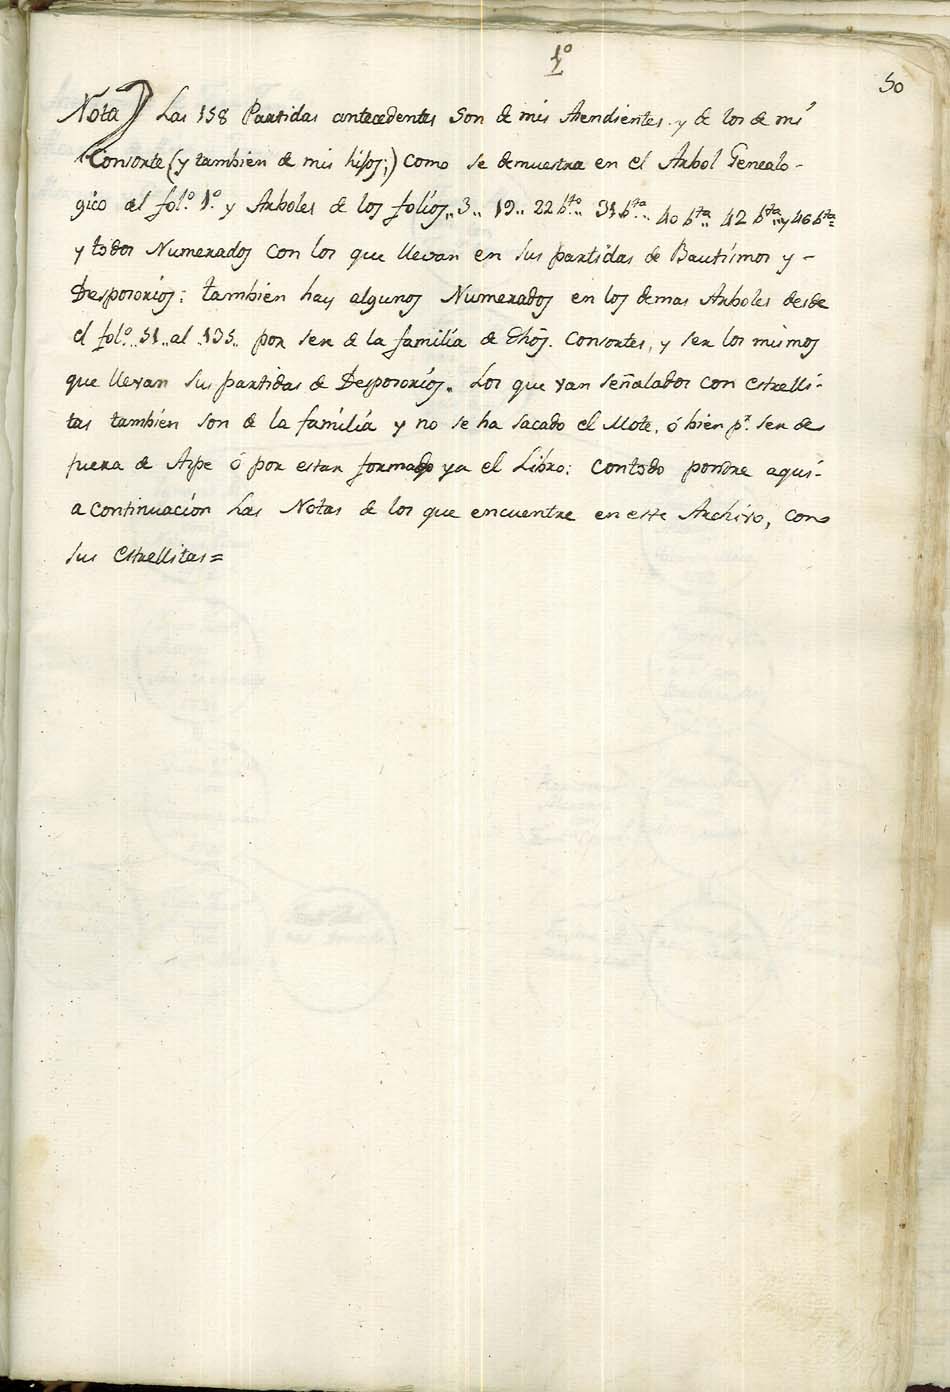 1º
50
Nota) Las 158 Partidas antecedentes son de mis Asendientes y de los de mi
Consorte (y tambien de mis hijos;) como se demuestra en el Arbol Genealo-
gico al folº 1º y Arboles de los folios,, 3,, 19,, 22 bto,, 31 bta,, 40 bta,, 42 bta,, y 46 bta=
y todos Numerados con los que llevan en sus partidas de Bautismos y -
Desposorios: tambien hay algunos Numerados en los demas Arboles desde
el folº 51,, al ,,135,, por ser de la familia de dhos. Consortes, y ser los mismos
que llevan sus partidas de Desposorios. Los que van señalados con estrelli-
tas tambien son de la familia y no se ha sacado el Mote, ó bien pr. ser de
fuera de Aspe ó por estar formado ya el Libro: con todo pondre aqui-
a continuacion las Notas de los que encuentre en este Archivo, con
sus estrellitas=